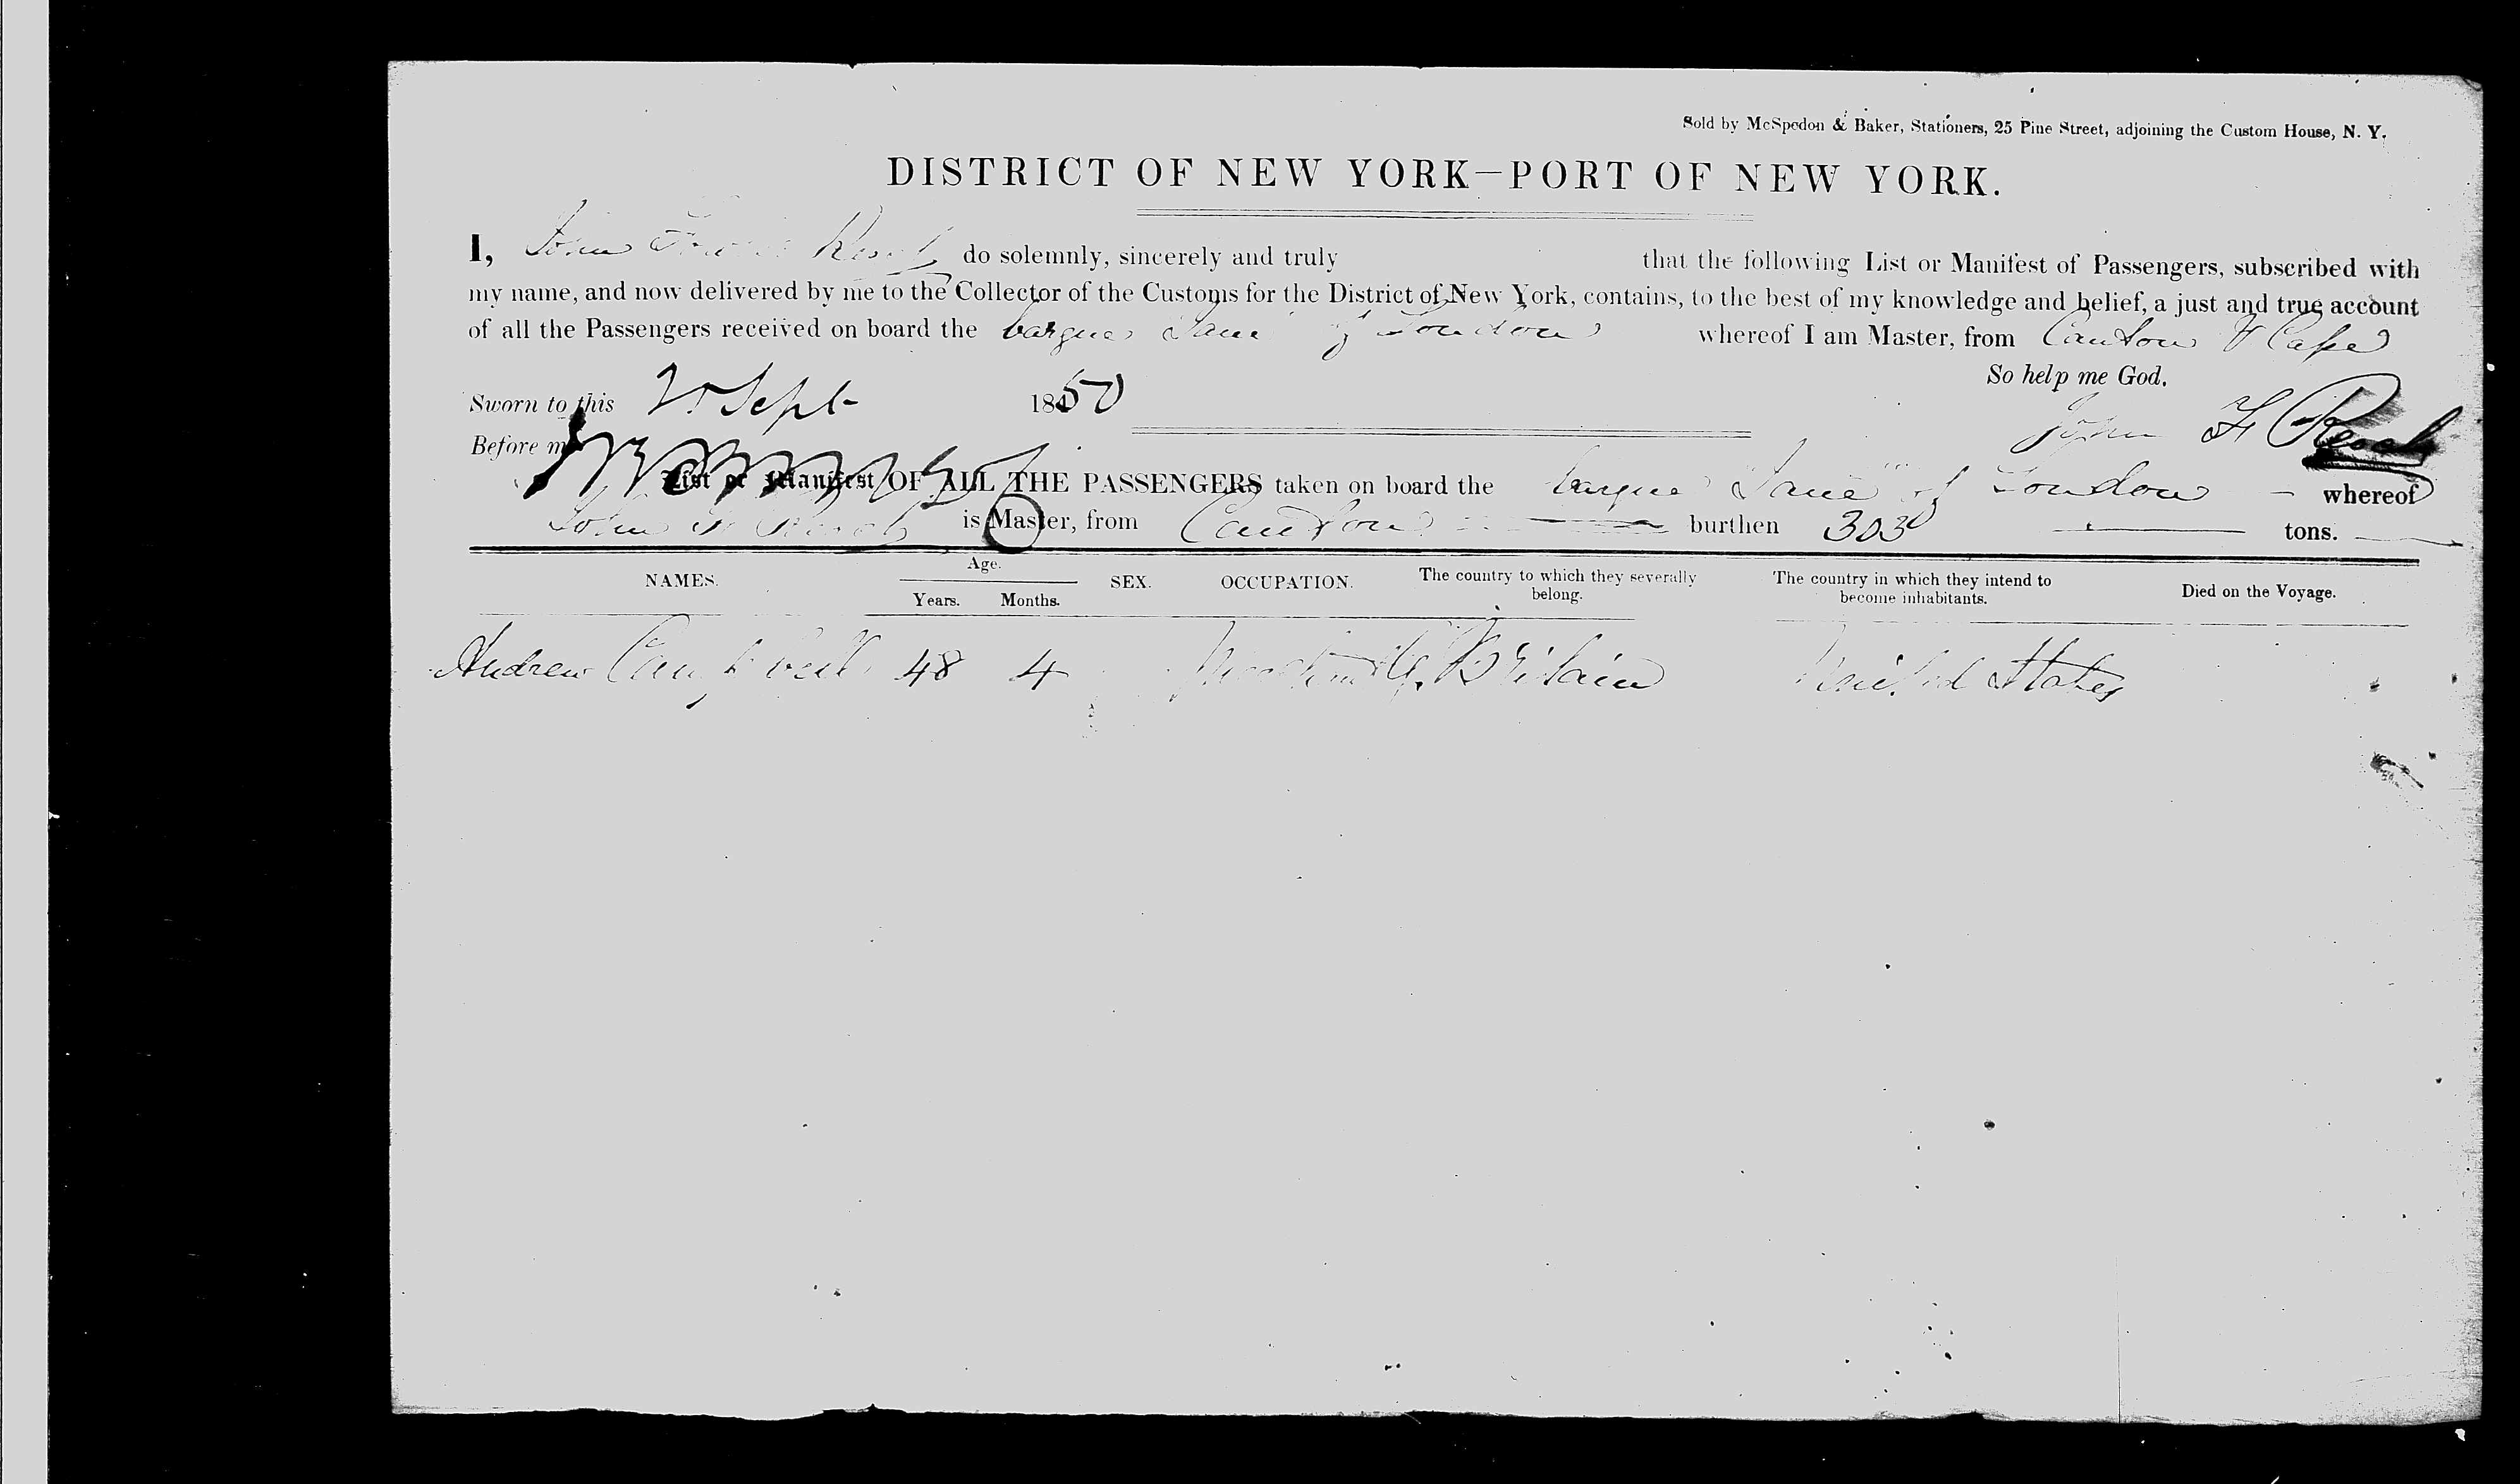 Sold by McSpedon & Baker, Stationers, 25 Pine Street, adjoining the Custom House, N. Y.
DISTRICT OF NEW YORK—PORT OF NEW YORK.
I, John do solemnly, sincerely and truly that the following List or Manifest of Passengers, subscribed with
my name, and now delivered by me to the Collector of the Customs for the District of New York, contains, to the best of my knowledge and belief, a just and true account
of all the Passengers received on board the barque Jane of London whereof I am Master, from Canton & Cape
So help me God.
Sworn to this Sept 1850
John F
Before me
List or Manifest OF ALL THE PASSENGERS taken on board the barque "Jane" of London — whereof
John F is Master, from Canton burthen 303 tons.
NAMES. Age. Years. Months. SEX. OCCUPATION. The country to which they severally belong. The country in which they intend to become inhabitants. Died on the Voyage.
Andrew Campbell 48 4 G. Britain United States